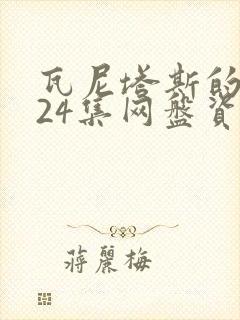 瓦尼塔斯的
24集网盘资
蒋麗梅